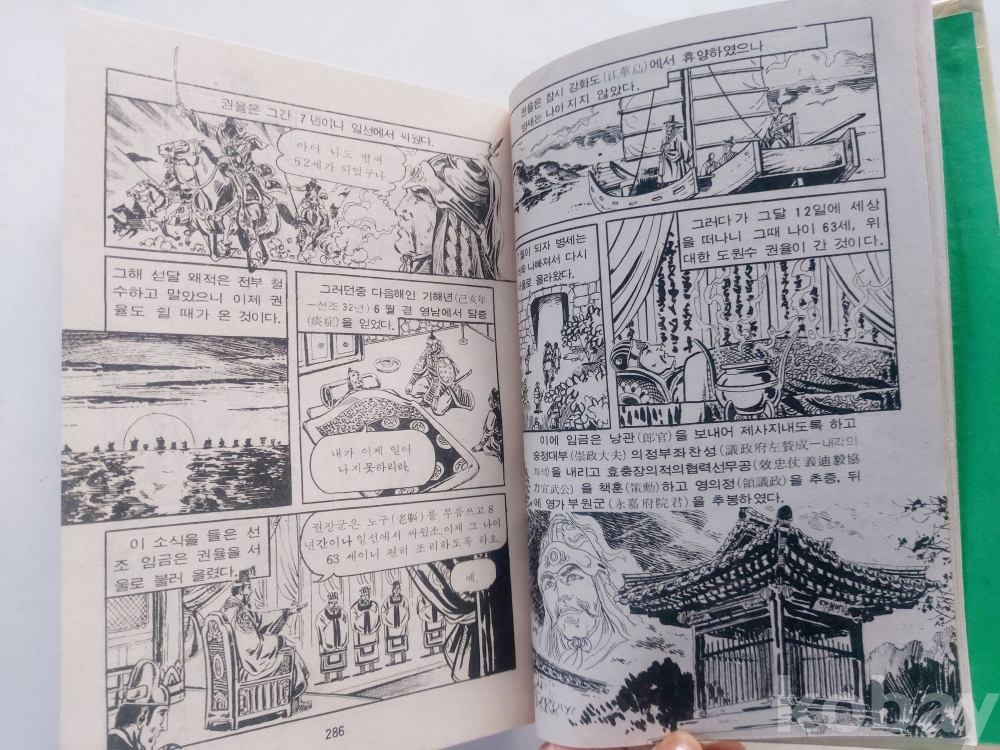 권율은 그간 7년이나 일선에서 싸웠다.
아아 나도 벌써
62세가 되었구나.
그해 섣달 왜적은 전부 철
수하고 말았으니 이제 권
율도 쉴 때가 온 것이다.
그러던중 다음해인 기해년(己亥年
—선조 32년) 6월 경 영남에서 담증
(痰症)을 얻었다.
내가 이제 일어
나지못하리라.
이 소식을 들은 선
조 임금은 권율을 서
울로 불러 올렸다.
권장군은 노구(老軀)를 무릅쓰고 8
년간이나 일선에서 싸웠소. 이제 그 나이
63세이니 편히 조리하도록 하오.
예.
286
권율은 잠시 강화도(江華島)에서 휴양하였으나
병세는 나아지지 않았다.
월이 되자 병세는
나빠져서 다시
올라왔다.
그러다가 그달 12일에 세상
을 떠나니 그때 나이 63세, 위
대한 도원수 권율이 간 것이다.
이에 임금은 낭관(郎官)을 보내어 제사지내도록 하고
숭정대부(崇政大夫) 의정부좌찬성(議政府左贊成—내각의
차석)을 내리고 효충장의적의협력선무공(效忠仗義迪毅協
力宣武公)을 책훈(策勳)하고 영의정(領議政)을 추증, 뒤
에 영가부원군(永嘉府院君)을 추봉하였다.
kobay